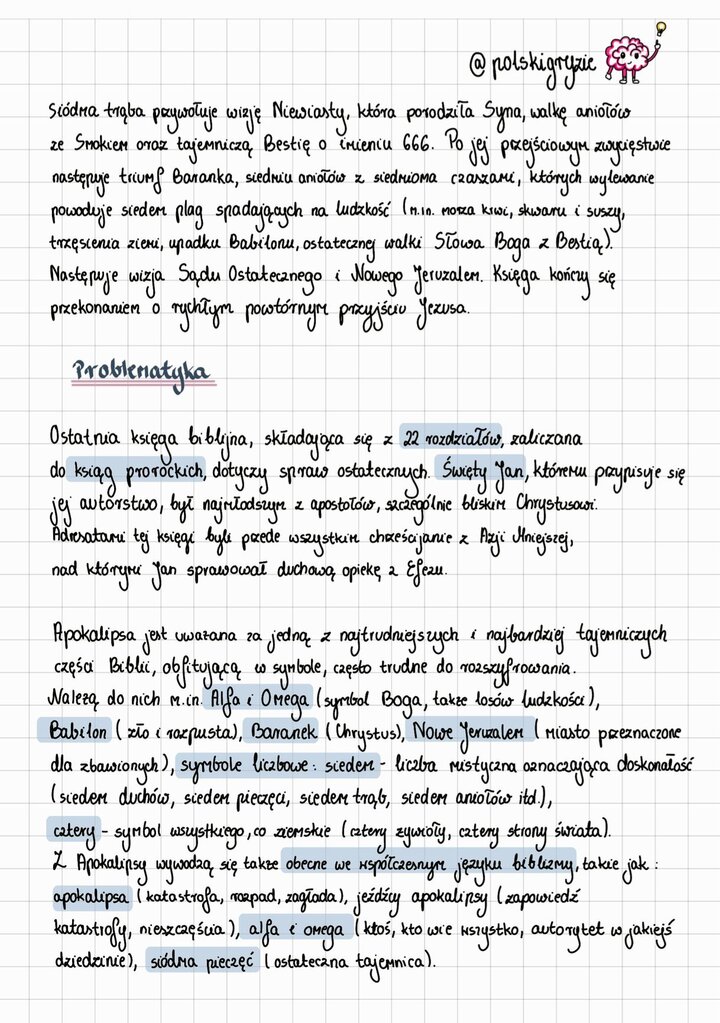 @polskigryzie
Siódma trąba przywołuje wizję Niewiasty, która porodziła Syna, walkę aniołów
ze Smokiem oraz tajemniczą Bestię o imieniu 666. Po jej przejściowym zwycięstwie
następuje triumf Baranka, siedmiu aniołów z siedmioma czaszami, których wylewanie
powoduje siedem plag spadających na ludzkość (m.in. morza krwi, skwaru i suszy,
trzęsienia ziemi, upadku Babilonu, ostatecznej walki Słowa Boga z Bestią).
Następuje wizja Sądu Ostatecznego i Nowego Jeruzalem. Księga kończy się
przekonaniem o rychłym powtórnym przyjściu Jezusa.
Problematyka
Ostatnia księga biblijna, składająca się z 22 rozdziałów, zaliczana
do ksiąg prorockich, dotyczy spraw ostatecznych. Święty Jan, któremu przypisuje się
jej autorstwo, był najmłodszym z apostołów, szczególnie bliskim Chrystusowi.
Adresatami tej księgi byli przede wszystkim chrześcijanie z Azji Mniejszej,
nad którymi Jan sprawował duchową opiekę z Efezu.
Apokalipsa jest uważana za jedną z najtrudniejszych i najbardziej tajemniczych
części Biblii, obfitującą w symbole, często trudne do rozszyfrowania.
Należą do nich m.in. Alfa i Omega (symbol Boga, także losów ludzkości),
Babilon (zło i rozpusta), Baranek (Chrystus), Nowe Jeruzalem (miasto przeznaczone
dla zbawionych), symbole liczbowe: siedem - liczba mistyczna oznaczająca doskonałość
(siedem duchów, siedem pieczęci, siedem trąb, siedem aniołów itd.),
cztery - symbol wszystkiego, co ziemskie (cztery żywioły, cztery strony świata).
Z Apokalipsy wywodzą się także obecne we współczesnym języku biblizmy, takie jak:
apokalipsa (katastrofa, rozpad, zagłada), jeźdźcy apokalipsy (zapowiedź
katastrofy, nieszczęścia), alfa i omega (ktoś, kto wie wszystko, autorytet w jakiejś
dziedzinie), siódma pieczęć (ostateczna tajemnica).